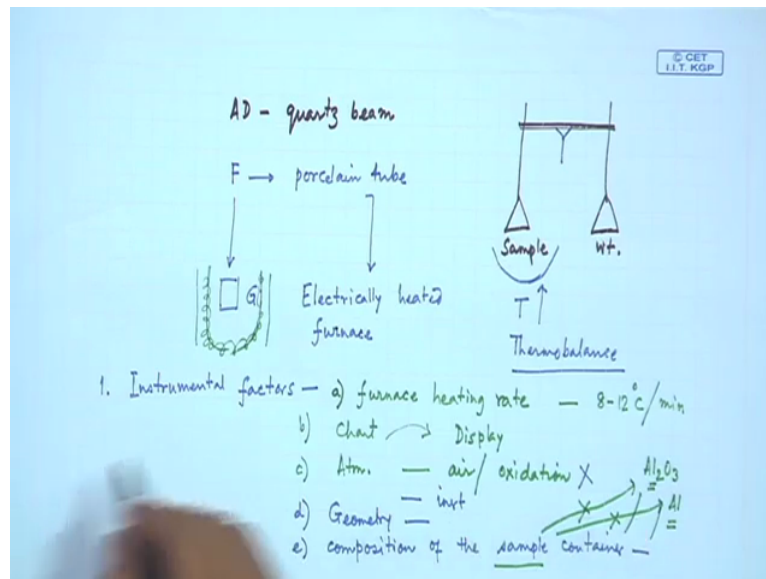 © CET
I.I.T. KGP
AD - quartz beam
F → porcelain tube
Sample wt.
G
Electrically heated
furnace
T
Thermobalance
1. Instrumental factors — a) furnace heating rate — 8-12°C/min
b) Chart → Display
c) Atm. — air/oxidation X
Al2O3
d) Geometry = inst
Al
e) composition of the sample container —